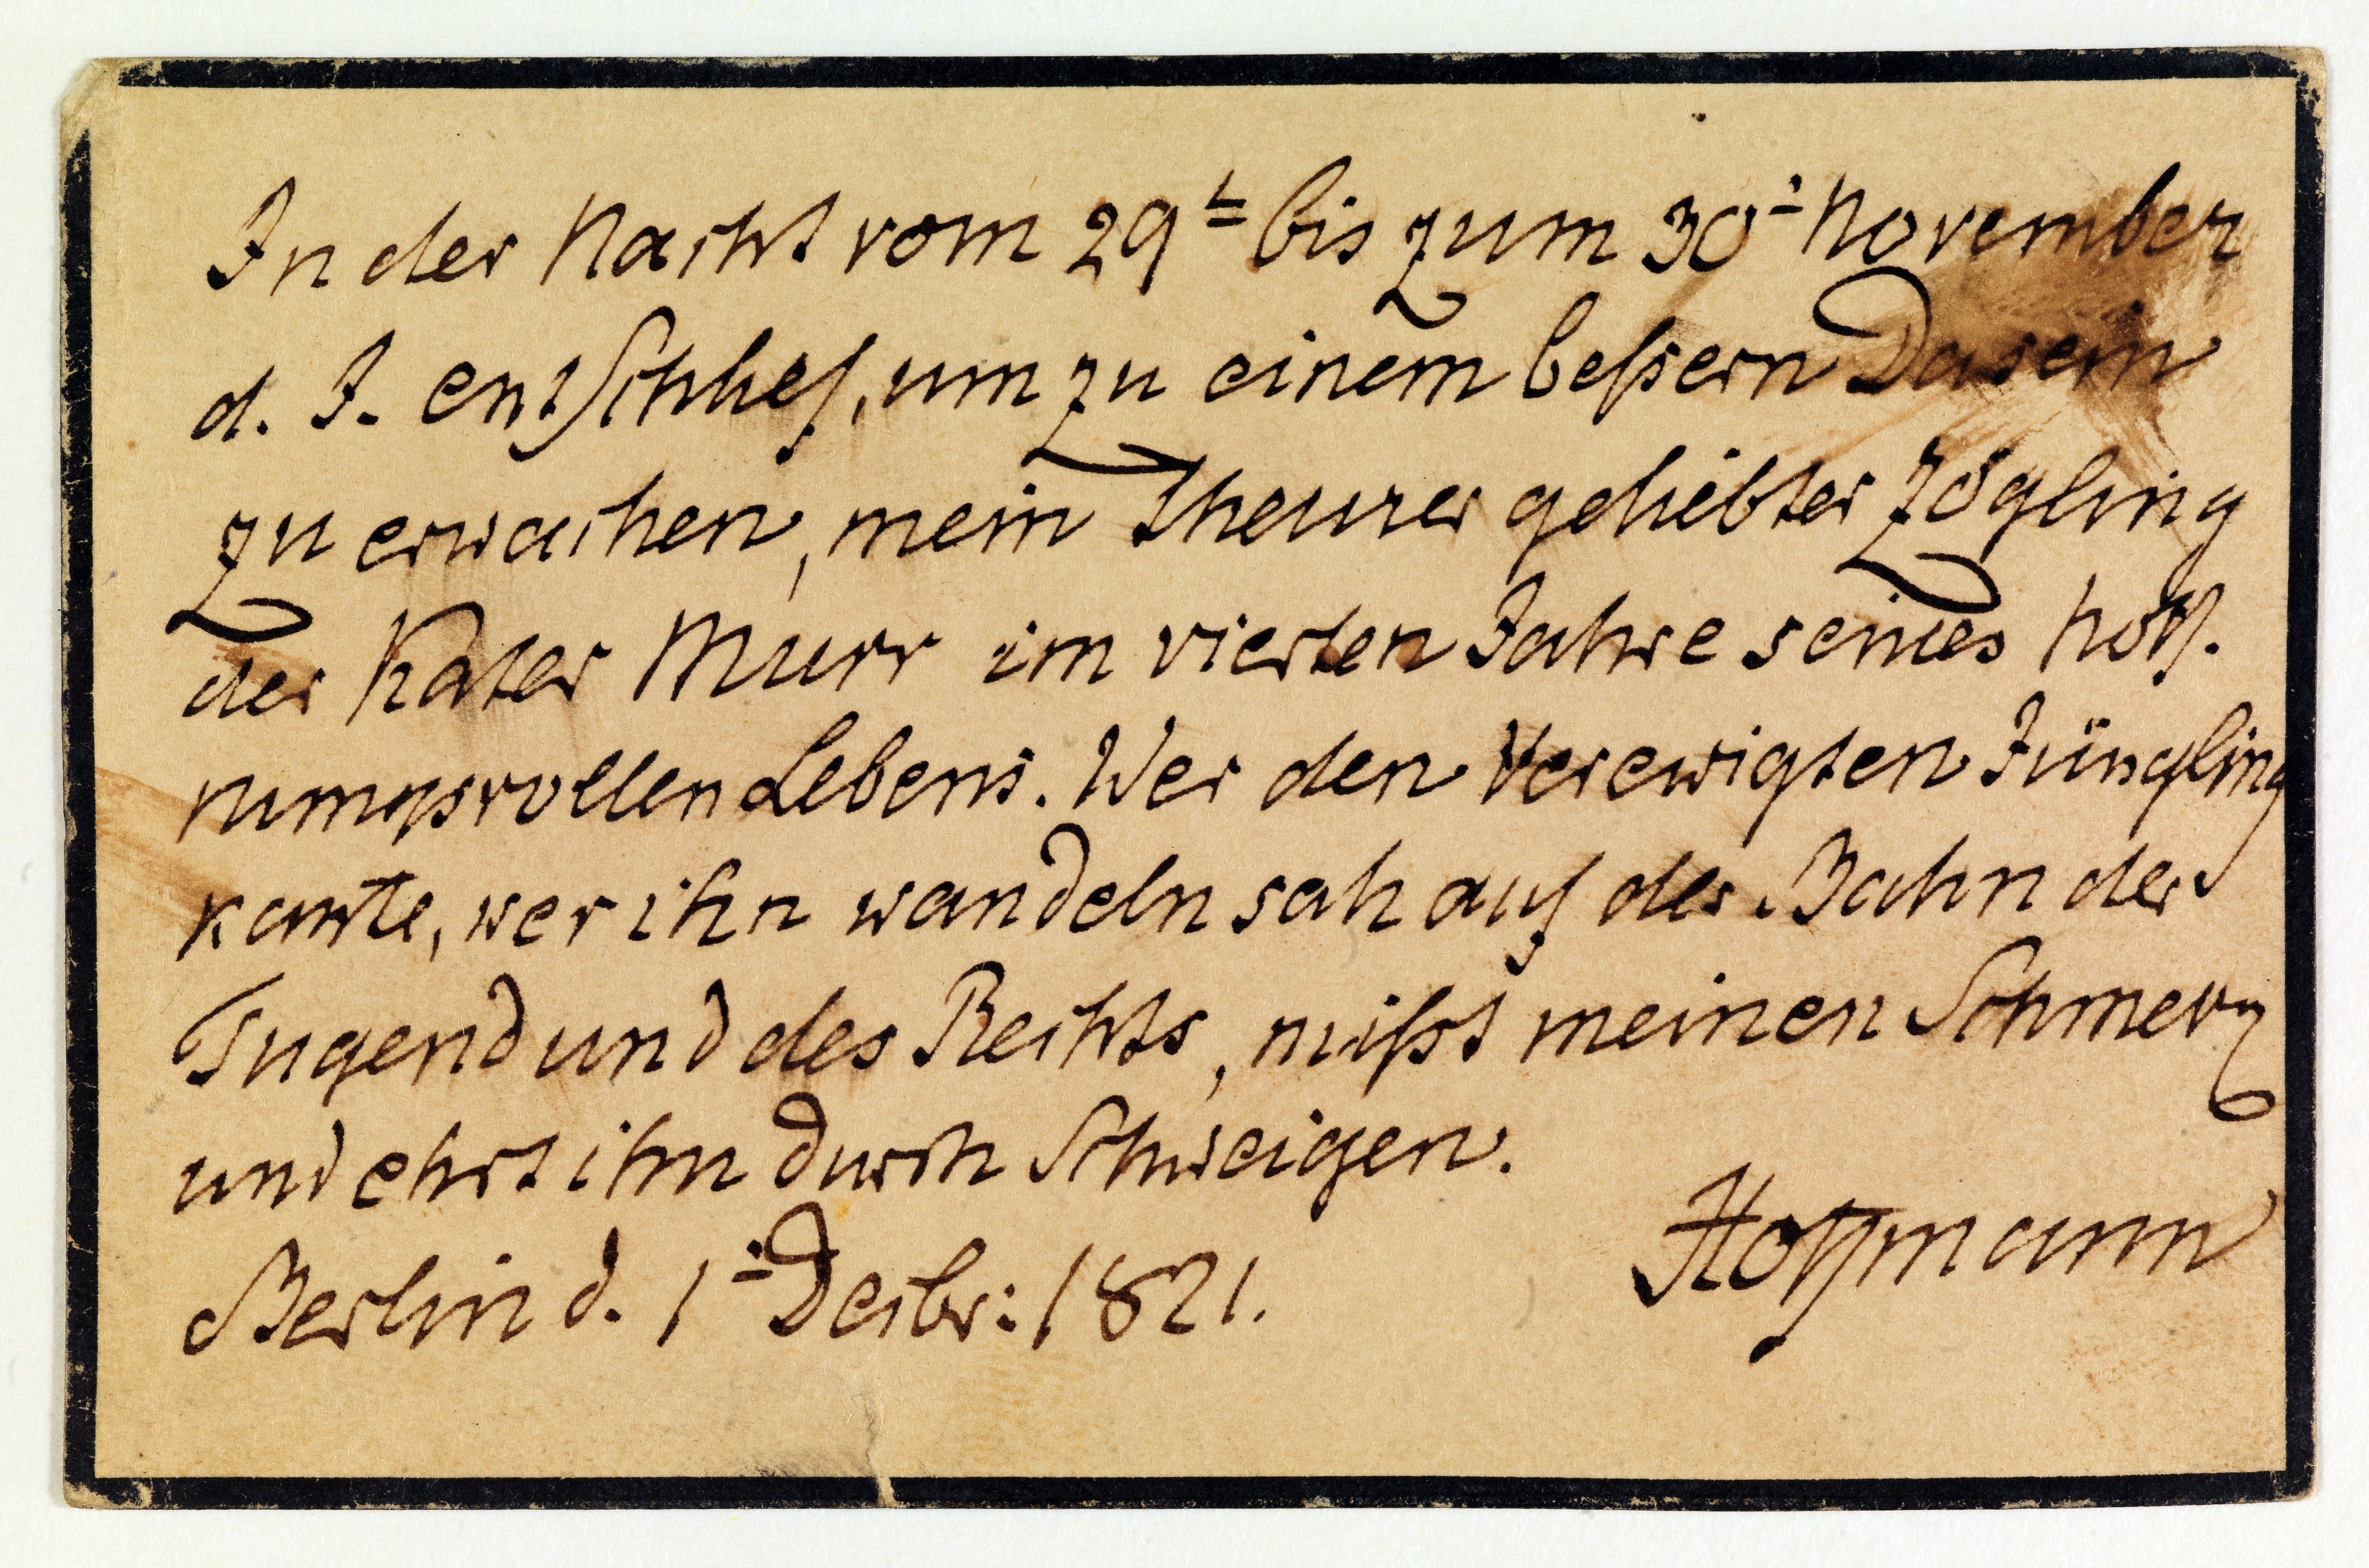 In der Nacht vom 29t bis zum 30. November
d. J. entschlief, um zu einem beßern Dasein
zu erwachen, mein theurer geliebter Zögling
der Kater Murr im vierten Jahre seines hoff-
nungsvollen Lebens. Wer den verewigten Jüngling
kannte, wer ihn wandeln sah auf der Bahn der
Tugend und des Rechts, mißt meinen Schmerz
und ehrt ihn durch Schweigen.
Hoffmann
Berlin d. 1. Decbr: 1821.